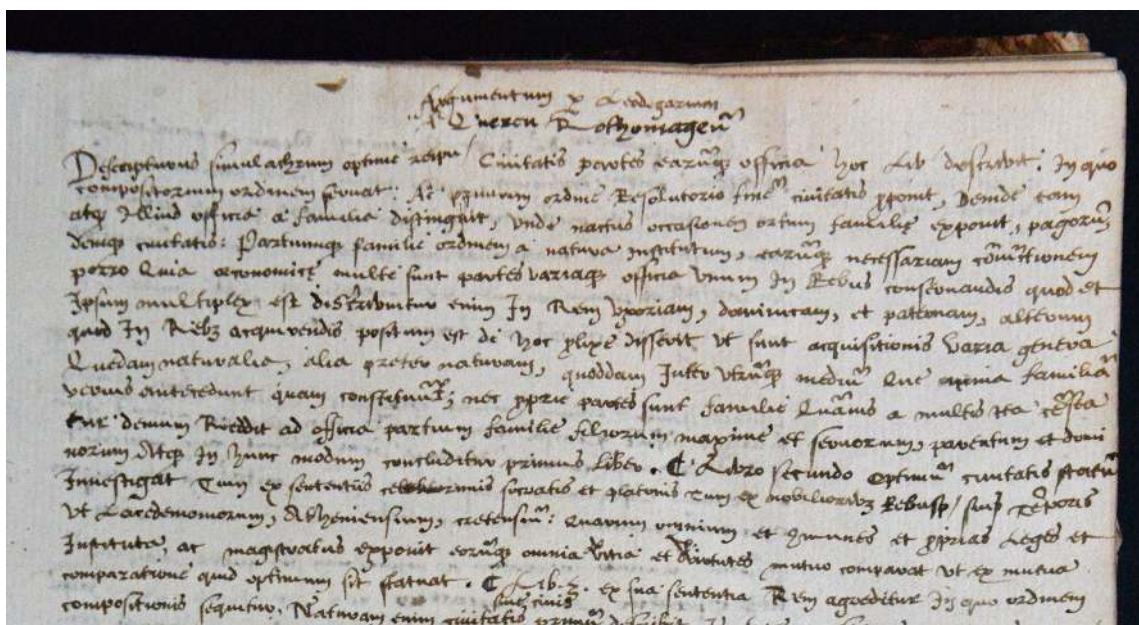 Argumentum p Leodegarium
A Quercu Rothomageũ
Descripturus simulachrum optime reipu/ Ciuitatis partes earũq officia hoc Lib describit. In quo
compositorium ordinem seruat: Ac primum ordine Resolutorio finẽ ciuitatis pponit, Deinde eam
atq Illius officia a familia distinguit, vnde nactus occasionem ortum familie exponit, pagorũ
deniq ciuitatis: Partiumq familie ordinem a natura institutum, earũq necessariam
porro Quia œconomice multe sunt partes variaq officia vnum In Rebus conseruandis quod et
Ipsum multiplex est distribuitur enim In Rem vxoriam, dominicam, et patriam, alterum
quod In Rebz acquirendis positum est de hoc plixe disserit vt sunt acquisitionis varia genera
Quedam naturalia, alia preter naturam, quoddam Inter vtrũq mediũ Que omnia familiã
verius antecedunt quam nec pprie partes sunt familie Quãuis a multis ita
tur demum Reddit ad officia partium familie filiorum maxime et seruorum, parentum et domi
norum Atq In hunc modum concluditur primus liber. C Libro secundo optimũ ciuitatis statũ
Inuestigat Tum ex sententiis socratis et platonis tum ex nobilioribz Rebusp/ suis tẽporis
vt Lacedemoniorum, Atheniensium, cretensiũ: Quarum omnium et et pprias Leges et
Instituta, ac magistratus exponit eorũq omnia vitia et virtutes mutuo comparat vt ex mutua
comparatione quid optimum sit statuat. C Lib. 3. ex sua sententia Rem agreditur In quo ordinem
siue ciuis
compositionis sequitur. Naturam enim ciuitatis primũ